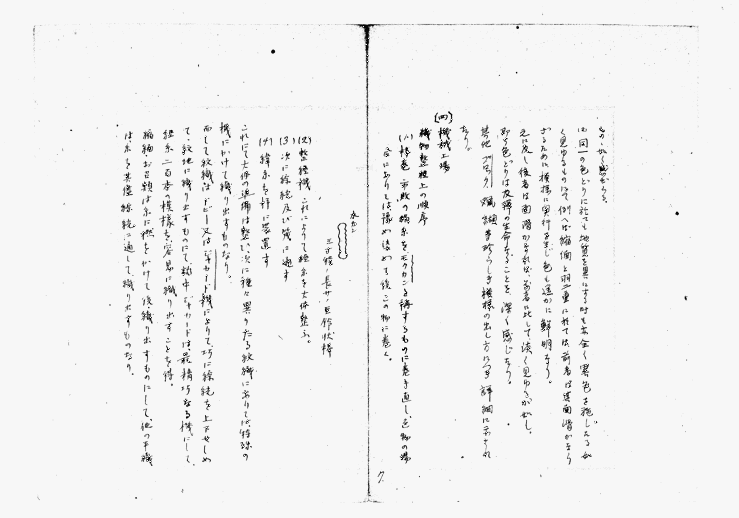 ものしかく感ぜらる。
同一の色どりに於ても地質を異にする時も全く異色を施したるが
く見ゆるものにて例へば縮緬と羽二重に於ては前者は表面滑かなら
ざるために模様に
元に反し後者は面滑かなれば、前者に比して淡く見ゆるが如し。
即ち色どりは友禅の生命なることを深く感じたり。
其他
なり。
(四)機械工場
機物整経上の順序
(1)捲巻 市販の綛糸をモクカンと称するものに巻き直し、色物の場
合にありては染め後めて後この物に巻く。
木カン
三寸位ノ長サノ目鈴状棒
(2)整経機 これによりて経糸を大体整ふ。
(3)次に綜絖及び筬に通す
(4)緯糸を杼に装置す
これにて大体の準備は整ひ、次に種々異りたる紋織にありては特殊の
機にかけて織り出すものなり。
而して紋織は、ドビー又はジャカード機によりて、巧に綜絖を上下せしめ
て、紋地に織り出すものにて、就中ジャカードは、最精巧なる機にして、
経糸二百本の模様を容易に織り出すことを得。
縮緬、お召類は糸に撚をかけて後織り出すものにして、他の平織
は糸を其儘綜絖に通して、織り出すものなり。
7.